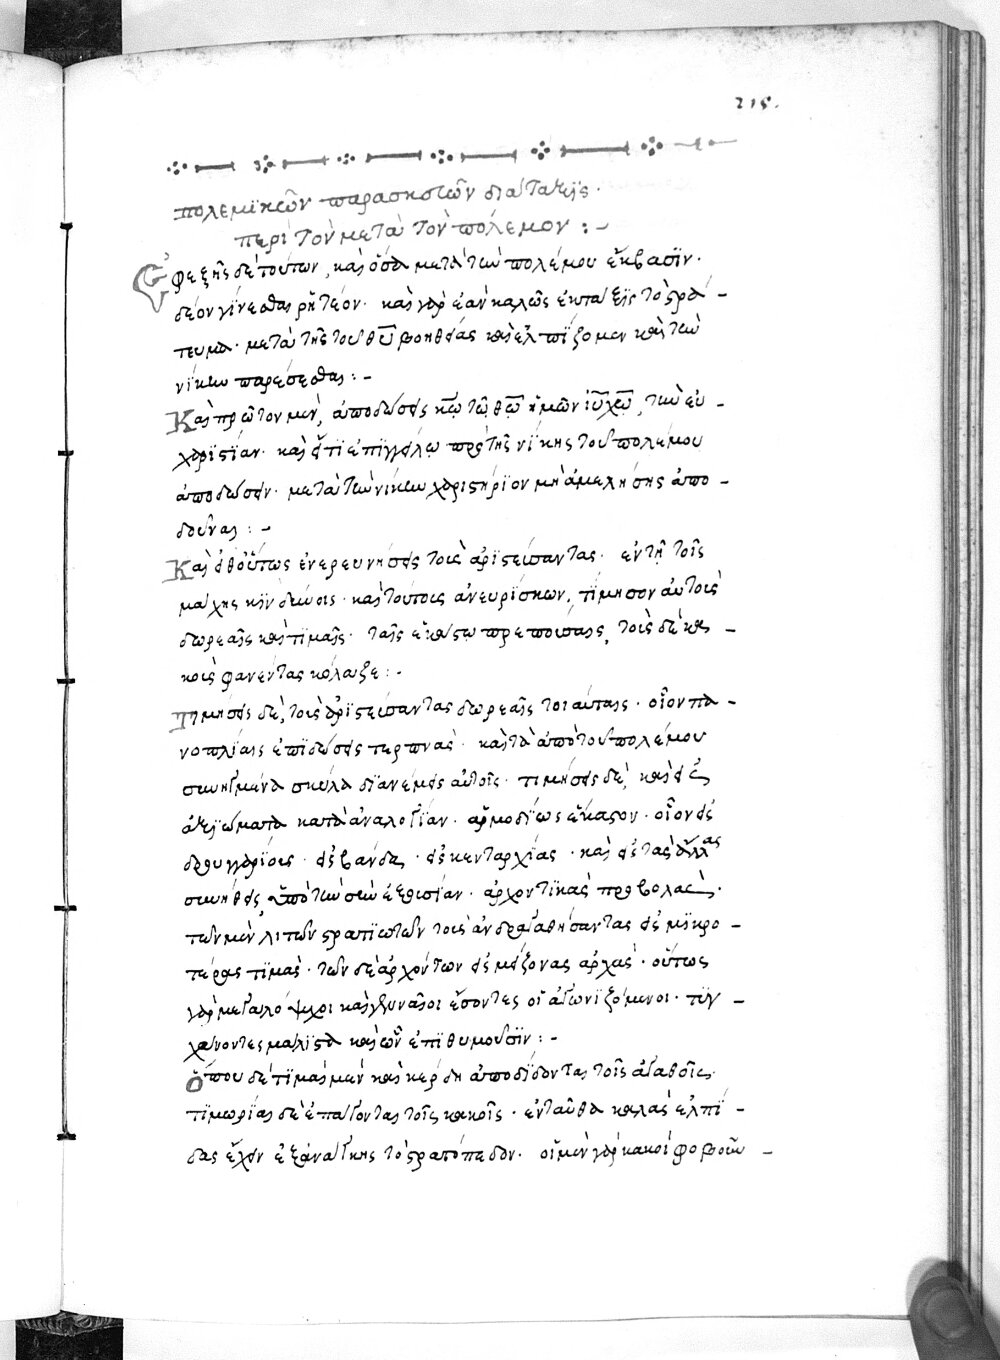 215.
πολεμϊκῶν παρασκευῶν διάταξϊς·
περὶ τῶν μετὰ τὸν πόλεμον :-
Ἐφεξῆς δὲ τούτων, καὶ ὅσα μετὰ τὴν πολέμου ἔκβασϊν·
δέον γίνεσθαι ῥητέον· καὶ γὰρ ἐὰν καλῶς ἐκταξῃς τὸ στρά-
τευμα· μετὰ τῆς τοῦ θῦ βοηθείας καὶ ἐλπίζομεν καὶ τὴν
νίκην παρέσεσθαι :-
Καὶ πρῶτον μὲν, ἀποδώσεις κῶ τῶ θῶ ἡμῶν ἰῦ χῶ, τὴν εὐ-
χαριστίαν· καὶ εἴ τι ἐπιγγείλω πρὸ τῆς νίκης τοῦ πολέμου
ἀποδώσειν· μετὰ τὴν νίκην χαριστήριον μὴ ἀμελήσῃς ἀπο-
δοῦναι :-
Καὶ εἶθ' οὕτως ἐνερευνήσεις τοὺς ἀριστεύσαντας· ἐν τῇ τοῖς
μάχης κινδύνοις· καὶ τούτοις ἀνευρίσκων, τίμησον αὐτοὺς
δωρεαῖς καὶ τιμαῖς· ταῖς ἑκάστω πρεπούσαις, τοὺς δὲ κα-
κοὺς φανέντας κόλαζε :-
Τιμήσεις δὲ, τοὺς ἀριστεύσαντας δωρεαῖς τοιαύταις· οἷον πα-
νοπλίαις ἐπιδώσεις τερπνάς· καὶ τὰ ἀπὸ τοῦ πολέμου
συνηγμένα σκῦλα διανέμεις αὐτοῖς· τιμήσεις δὲ, καὶ εἰς
ἀξιώματα κατὰ ἀναλογίαν· ἁρμοδίως ἕκαστον· οἷον εἰς
δρουγγαρίους· εἰς βάνδα· εἰς κενταρχίας· καὶ εἰς τὰς ἄλλας
συνήθεις ὑπὸ τὴν σὴν ἐξουσίαν· ἀρχοντικὰς προβολάς·
τῶν μὲν λιτῶν στρατιωτῶν τοὺς ἀνδραγαθήσαντας εἰς μικρο-
τέρας τιμάς· τῶν δὲ ἀρχόντων εἰς μείζονας ἀρχάς· οὕτως
γὰρ μεγαλόψυχοι καὶ γενναῖοι ἔσονται οἱ ἀγωνιζόμενοι· τυγ-
χάνοντες μάλιστα καὶ ὧν ἐπιθυμοῦσιν :-
Ὅπου δὲ τιμαὶ μὲν καὶ κέρδη ἀποδίδονται τοῖς ἀγαθοῖς·
τιμωρίαι δὲ ἐπάγονται τοῖς κακοῖς· ἐνταῦθα καλὰς ἐλπί-
δας ἔχειν ἐξανάγκης τὸ στρατόπεδον· οἱ μὲν γὰρ κακοὶ φοβοῦν-